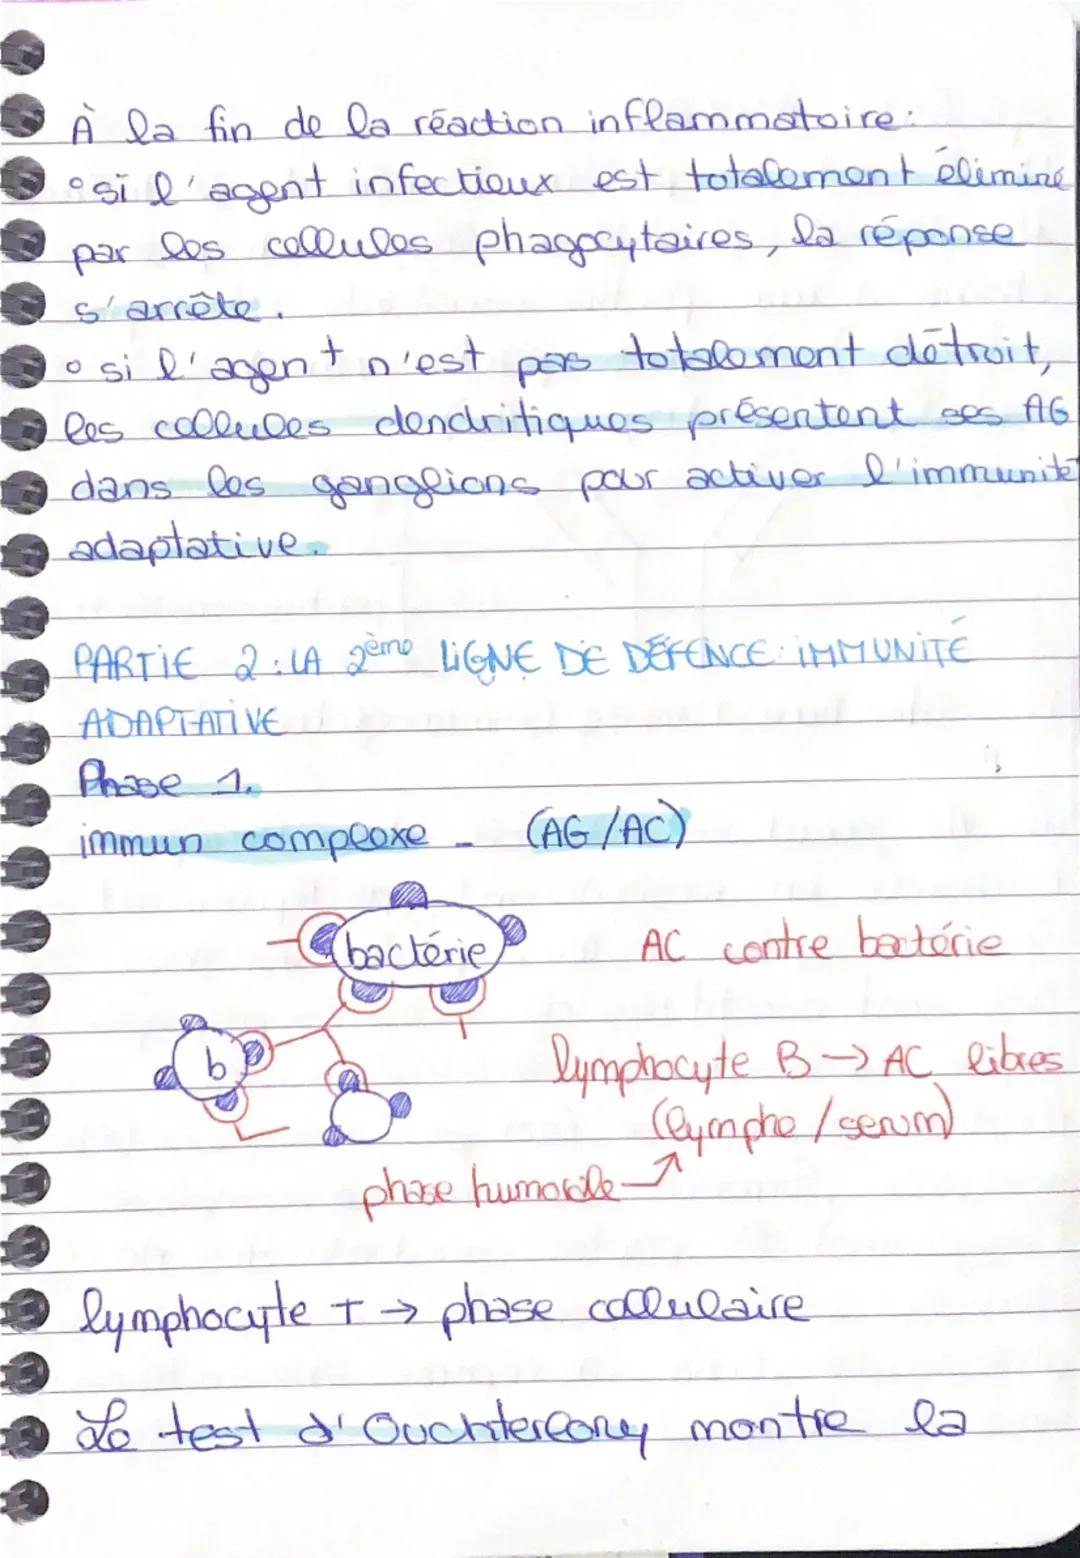 À la fin de la réaction inflammatoire :
• si l'agent infectieux est totalement éliminé
par les cellules phagocytaires, la réponse
s'arrête.
• si l'agent n'est pas totalement détruit,
les cellules dendritiques présentent ses AG
dans les ganglions pour activer l'immunité
adaptative.
PARTIE 2 : LA 2ème LIGNE DE DÉFENCE : IMMUNITÉ
ADAPTATIVE
Phase 1.
immun complexe - (AG/AC)
bactérie
AC contre bactérie
b
lymphocyte B → AC libres
(lymphe / serum)
phase humorale →
lymphocyte T → phase cellulaire
Le test d'Ouchterlony montre la